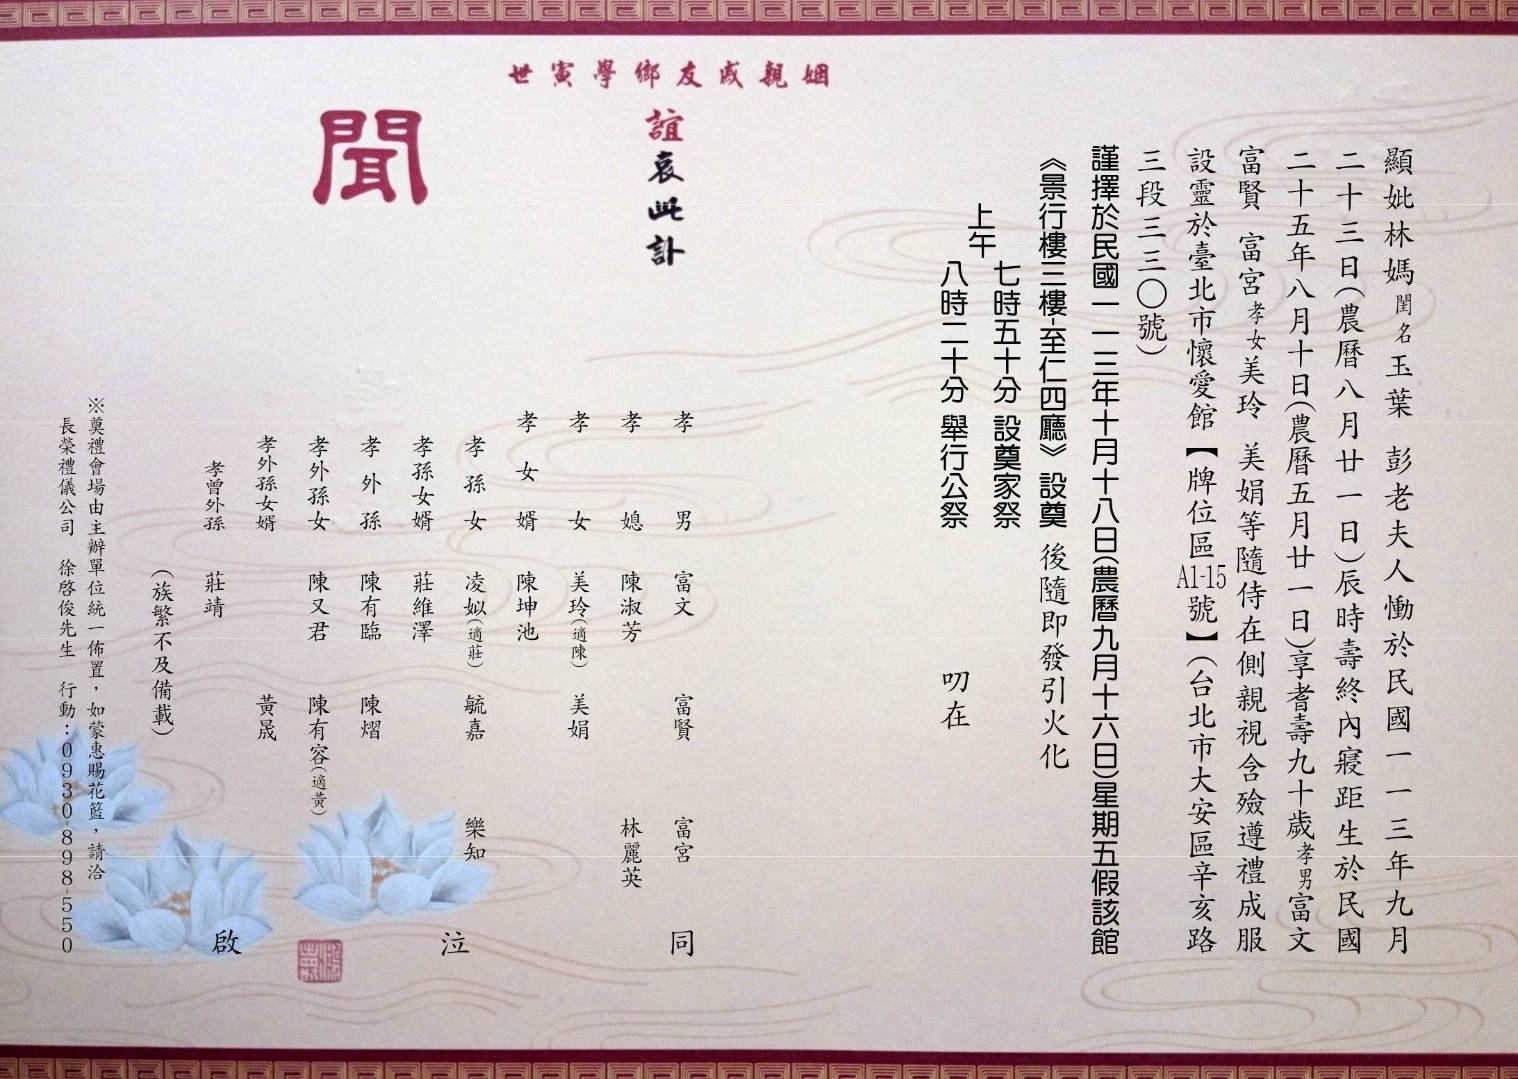 顯妣林媽閨名玉葉 彭老夫人慟於民國一一三年九月
二十三日(農曆八月廿一日)辰時壽終內寢距生於民國
二十五年八月十日(農曆五月廿一日)享耆壽九十歲孝男富文
富賢 富宮孝女美玲 美娟等隨侍在側親視含殮遵禮成服
設靈於臺北市懷愛館【牌位區A1-15號】(台北市大安區辛亥路
三段三三〇號)
謹擇於民國一一三年十月十八日(農曆九月十六日)星期五假該館
《景行樓三樓-至仁四廳》設奠 後隨即發引火化
上午
七時五十分 設奠家祭
八時二十分 舉行公祭
叨在
姻親戚友鄉學寅世
誼哀此訃
聞
孝男 富文 富賢 富宮
孝媳 陳淑芳 林麗英
孝女 美玲(適陳) 美娟
孝女婿 陳坤池
孝孫女 凌姒(適莊) 毓嘉 樂知
孝孫女婿 莊維澤
孝外孫 陳有臨 陳熠
孝外孫女 陳又君 陳有容(適黃)
孝外孫女婿 黃晟
孝曾外孫 莊靖
同泣啟
(族繁不及備載)
※奠禮會場由主辦單位統一佈置，如蒙惠賜花籃，請洽
長榮禮儀公司 徐啓俊先生 行動：0930-898-550